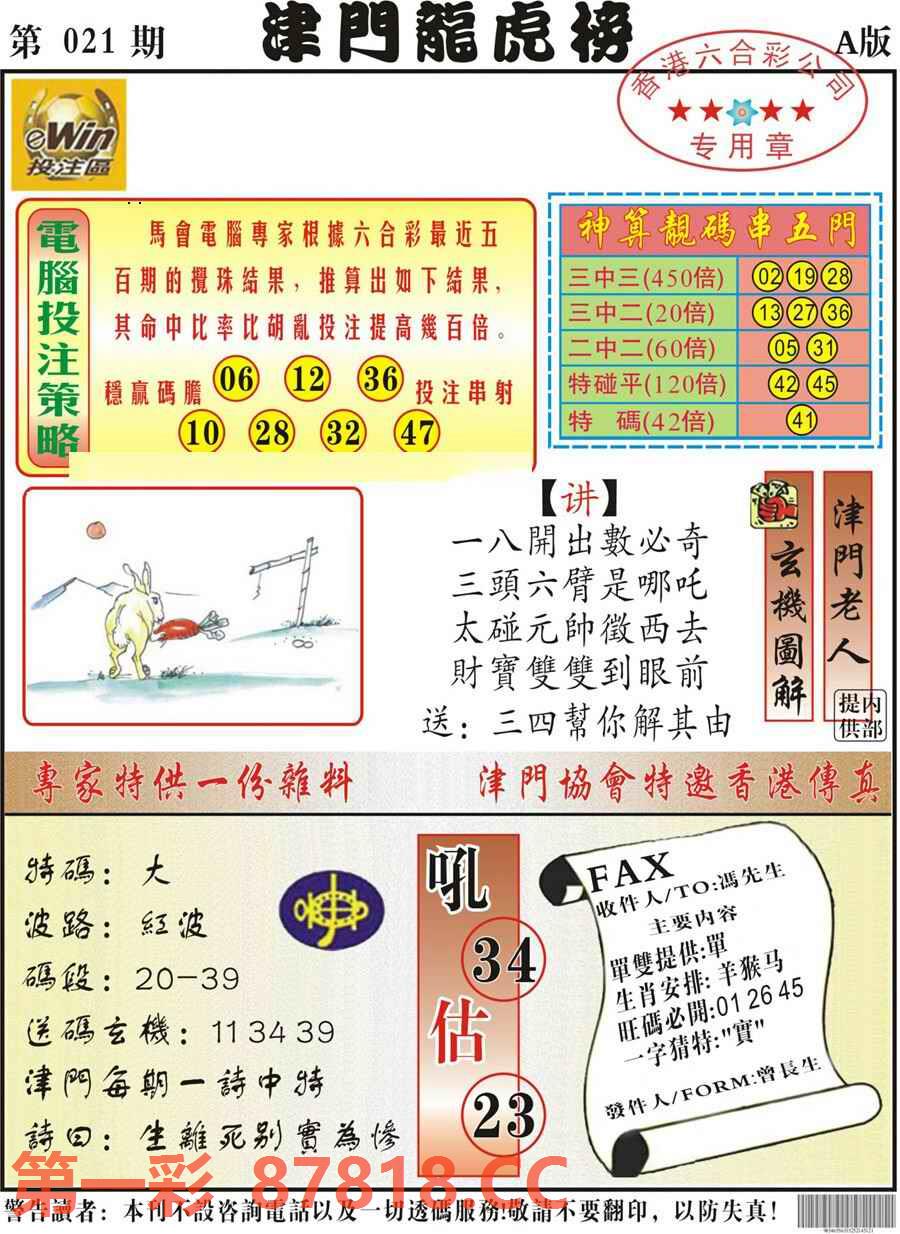 第 021 期
津門龍虎榜
A版
香港六合彩公司
专用章
eWin
投注區
電腦投注策略
馬會電腦專家根據六合彩最近五
百期的攪珠結果，推算出如下結果，
其命中比率比胡亂投注提高幾百倍。
穩贏碼膽 06 12 36 投注串射
10 28 32 47
神算靚碼串五門
三中三(450倍) 02 19 28
三中二(20倍) 13 27 36
二中二(60倍) 05 31
特碰平(120倍) 42 45
特 碼(42倍) 41
【讲】
一八開出數必奇
三頭六臂是哪吒
太碰元帥徵西去
財寶雙雙到眼前
送：三四幫你解其由
玄機圖解
津門老人
内部提供
專家特供一份雜料
津門協會特邀香港傳真
特碼：大
波路：紅波
碼段：20-39
送碼玄機：11 34 39
津門每期一詩中特
詩曰：生離死别實為慘
吼
34
估
23
FAX
收件人/TO:馮先生
主要内容
單雙提供:單
生肖安排:羊猴马
旺碼必開:01 26 45
一字猜特:"實"
發件人/FORM:曾長生
第一彩 87818.CC
警告讀者：本刊不設咨詢電話以及一切透碼服務!敬請不要翻印，以防失真！